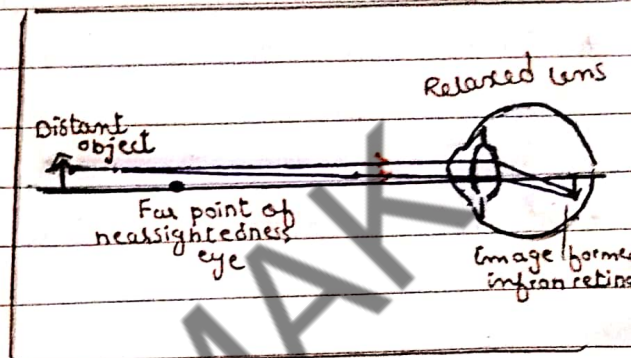 Relaxed lens
Distant
object
Far point of
nearsightedness
eye
Image forme
infron retina
MAK